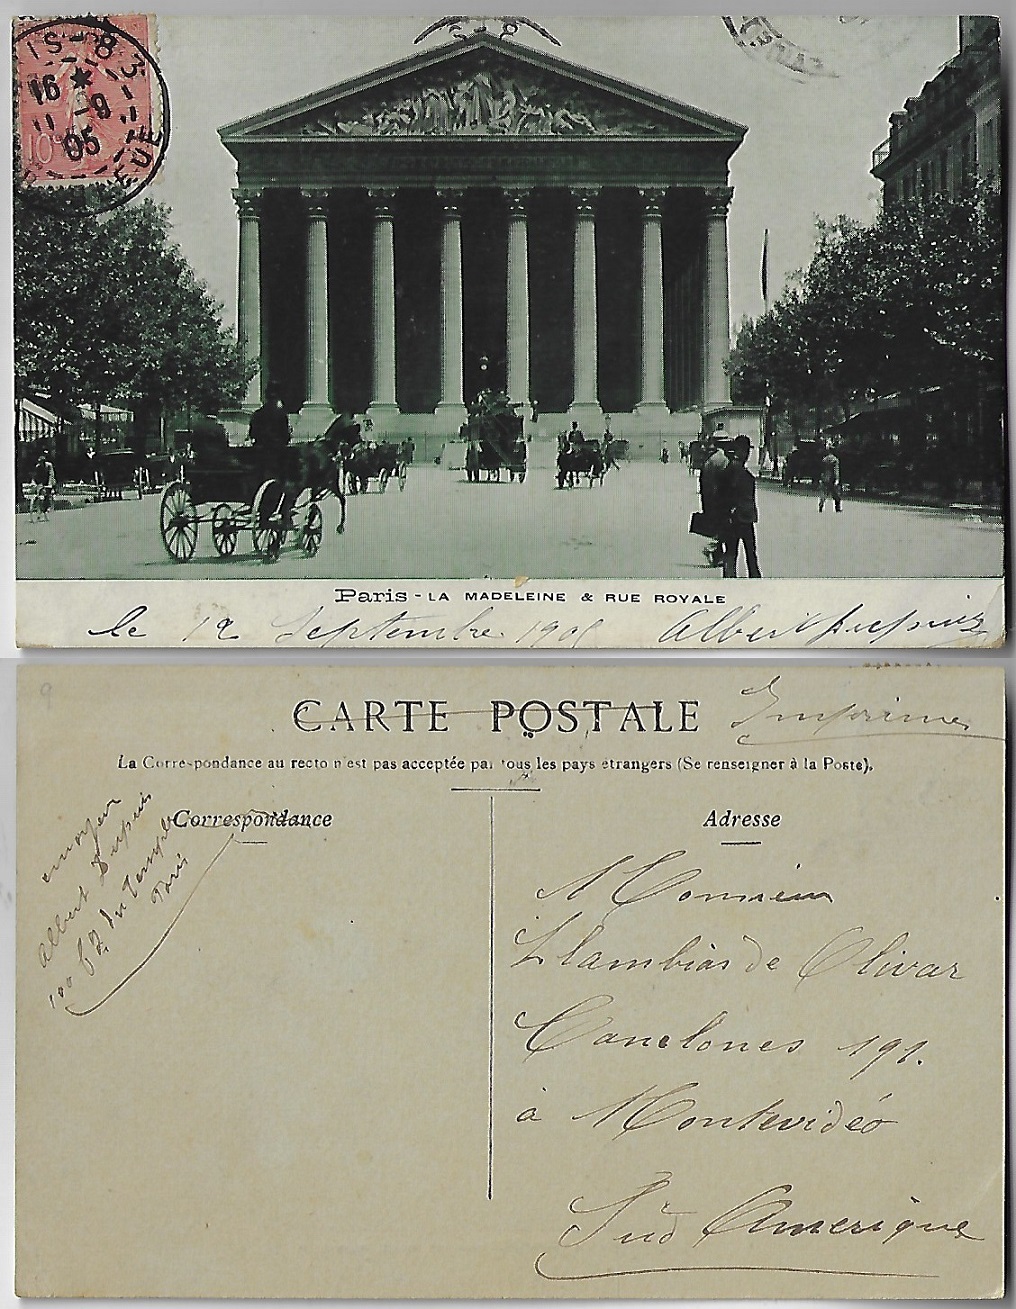 IS - 83
16 *
11 - 9
05
10
Paris - LA MADELEINE & RUE ROYALE
le 12 Septembre 1905 Albert Dupuis
CARTE POSTALE
Imprimés
La Correspondance au recto n'est pas acceptée par tous les pays étrangers (Se renseigner à la Poste).
Correspondance
envoyeur
Albert Dupuis
100 bd du Temple
Paris
Adresse
Monsieur
Llambias de Olivar
Canelones 191.
à Montevidéo
Sud Amerique